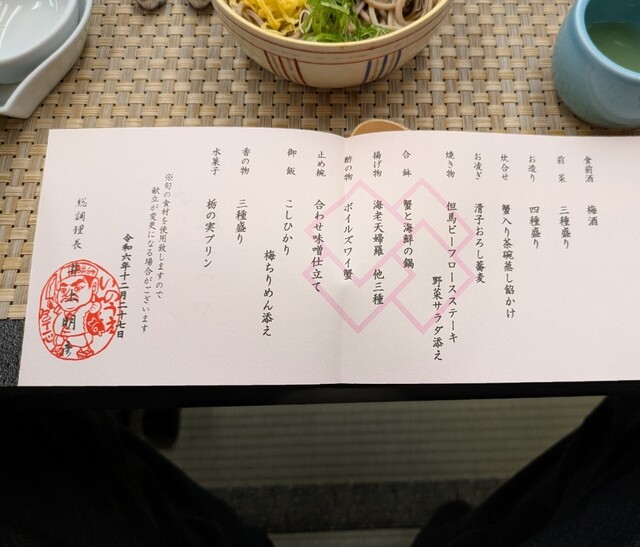 食前酒 梅酒
前菜 三種盛り
お造り 四種盛り
炊合せ 蟹入り茶碗蒸し餡かけ
お凌ぎ 滑子おろし蕎麦
焼き物 但馬ビーフロースステーキ
野菜サラダ添え
合鉢 蟹と海鮮の鍋
揚げ物 海老天婦羅 他三種
酢の物 ボイルズワイ蟹
止め椀 合わせ味噌仕立て
御飯 こしひかり
梅ちりめん添え
香の物 三種盛り
水菓子 栃の実プリン
※旬の食材を使用致しますので
献立が変更になる場合がございます
令和六年十二月二十七日
総調理長 井上明彦